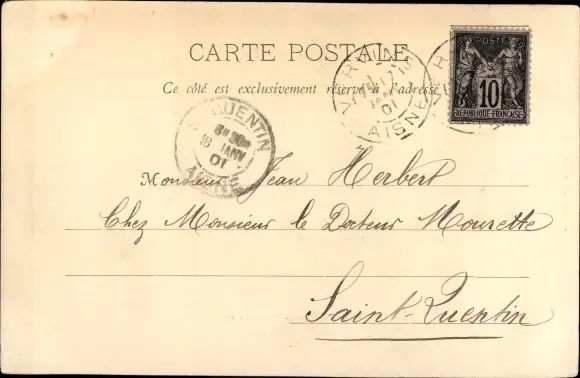 CARTE POSTALE
Ce côté est exclusivement réservé à l'adresse
POSTE
10
REPUBLIQUE FRANÇAISE
VERVINS
17
JANV
01
AISNE
QUENTIN
18 JANV
01
Monsieur Jean Herbert
Chez Monsieur le Docteur Mourette
Saint-Quentin